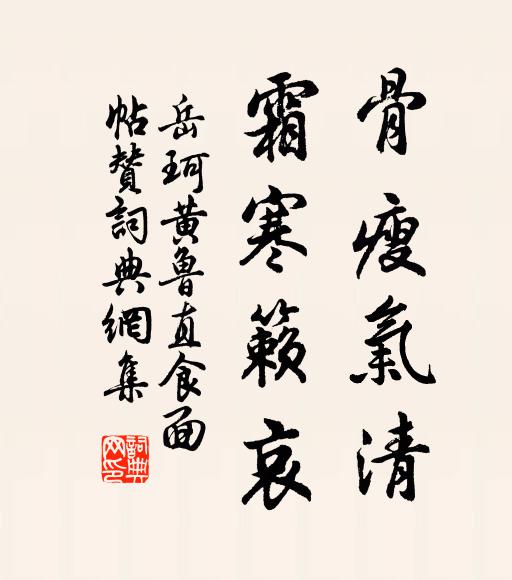 骨瘦氣清
霜寒籟哀
岳珂黄魯直食面
帖贊詞典網集
詞典網印